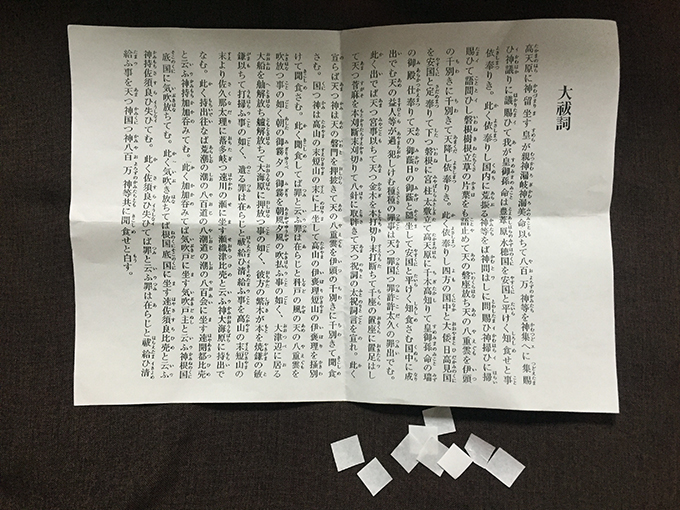 大祓詞
高天原に神留坐す皇が親神漏岐神漏美の命以ちて八百万神等を神集へに集賜
ひ神議りに議賜ひて我が皇御孫命は豊葦原水穂国を安国と平けく知食せと事
依奉りき。此く依奉りし国内に荒振る神等をば神問はしに問賜ひ神掃ひに掃
賜ひて語問ひし磐根樹根立草の片葉をも語止めて天の磐座放ち天の八重雲を伊頭
の千別きに千別きて天降し依奉りき。此く依奉りし四方の国中と大倭日高見国
を安国と定奉りて下つ磐根に宮柱太敷立て高天原に千木高知りて皇御孫命の瑞
の御殿仕奉りて天の御蔭日の御蔭と隠坐して安国と平けく知食さむ国中に成
出でむ天の益人等が過犯しけむ種種の罪事は天つ罪国つ罪許許太久の罪出でむ。
此く出でば天つ宮事以ちて天つ金木を本打切り末打断ちて千座の置座に置足はし
て天つ菅麻を本刈断末刈切りて八針に取辟きて天つ祝詞の太祝詞事を宣れ。此く
宣らば天つ神は天の磐門を押披きて天の八重雲を伊頭の千別きに千別きて聞食
さむ。国つ神は高山の末短山の末に上坐して高山の伊褒理短山の伊褒理を掻別
けて聞食さむ。此く聞食してば罪と云ふ罪は在らじと科戸の風の天の八重雲を
吹放つ事の如く朝の御霧夕の御霧を朝風夕風の吹払ふ事の如く、大津辺に居る
大船を舳解放ち艫解放ちて大海原に押放つ事の如く、彼方の繁木が本を焼鎌の敏
鎌以ちて打掃ふ事の如く、遺る罪は在らじと祓給ひ清給ふ事を高山の末短山の
末より佐久那太理に落多岐つ速川の瀬に坐す瀬織津比売と云ふ神大海原に持出で
なむ。此く持出往なば荒潮の潮の八百道の八潮道の潮の八百会に坐す速開都比売
と云ふ神持加加呑みてむ。此く加加呑みてば気吹戸に坐す気吹戸主と云ふ神根国
底国に気吹放ちてむ。此く気吹放ちてば根国底国に坐す速佐須良比売と云ふ
神持佐須良ひ失ひてむ。此く佐須良ひ失ひてば罪と云ふ罪は在らじと祓給ひ清
給ふ事を天つ神国つ神八百万神等共に聞食せと白す。